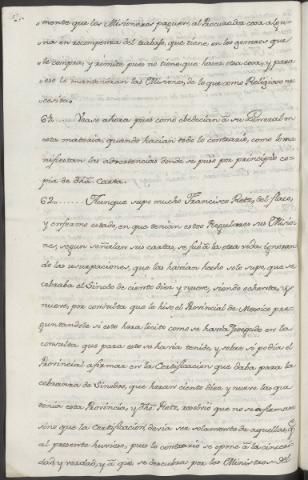 mente que los Misioneros paguen, al Procurador cosa algu-
na en recompensa del trabajo, que tiene, en los generos que
le compra, y remite pues no tiene que haver otra cosa, y para
eso le mandaran las Misiones, de lo que como Religioso ne-
cesita.
61. Vease ahora pues como obedecian à su General en
esta materia, quando hacian todo lo contrario, como lo ma-
nifiestan los antecedentes donde se puso por principio co-
pia de dha. Carta.
62. Aunque supo mucho Francisco Retz, del flaco,
y enfermo estado, en que tenian estos Regulares sus Misio-
nes, segun señalan sus cartas, se fuè à la otra vida ignoran-
do las usurpaciones, que las havian hecho solo supo, que se
cobraba el Sinodo de ciento diez y nueve, siendo ochenta, y
nueve, por consulta que le hizo el Provincial de Mexico pre-
guntandole si esto hera licito como se havia juzgado en la
consulta que para este se havia tenido, y sobre si podia el
Provincial afirmar en la Certificacion que daba para la
cobranza de Sinodos, que heran ciento diez y nueve los que
tenia esta Provincia, y dho. Retz, resolvio que no se afirmase
sino que la certificacion devia ser solamente de aquellos, q.
al presente huviese, pues lo contrario se opone à la sinceri-
dad y verdad, y à que se descubra por los Ministros del